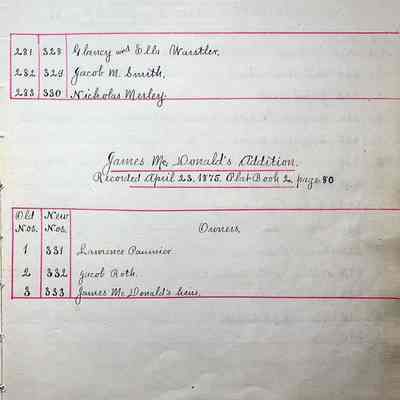 281 328 Clancy and Ella Warstler.
282 329 Jacob M. Smith.
283 330 Nickolas Merley.
James Mc Donald's Addition.
Recorded April 23, 1875. Plat Book 2, page 80
Old Nos. New Nos. Owners,
1 331 Lawrence Paumier
2 332 Jacob Roth.
3 333 James Mc Donald's heirs.